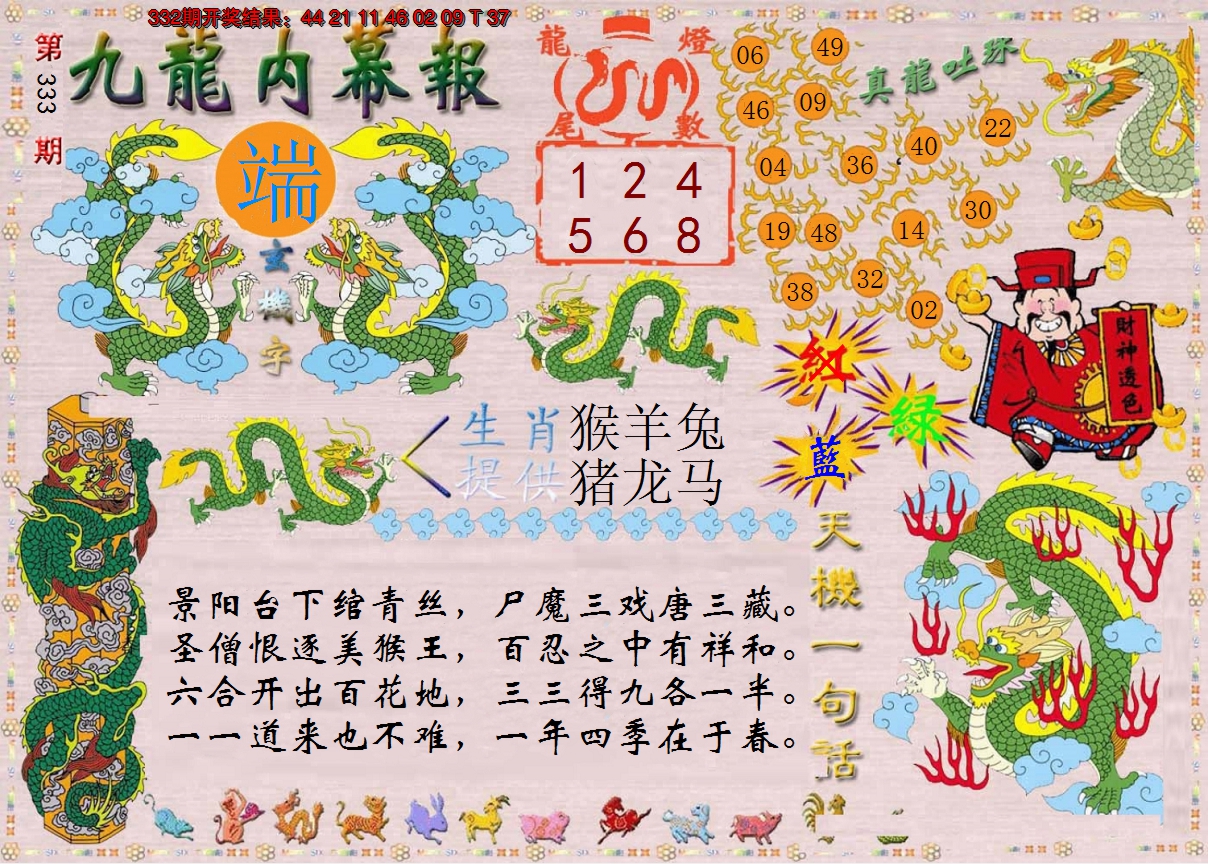 332期开奖结果：44 21 11 46 02 09 T 37
第333期
九龍内幕報
端
玄機字
龍燈尾數
1 2 4
5 6 8
真龍吐珠
06 49
46 09
04 36 40 22
19 48 14 30
38 32 02
財神透色
紅
綠
藍
生肖 猴羊兔
提供 猪龙马
天機一句話
景阳台下绾青丝，尸魔三戏唐三藏。
圣僧恨逐美猴王，百忍之中有祥和。
六合开出百花地，三三得九各一半。
一一道来也不难，一年四季在于春。